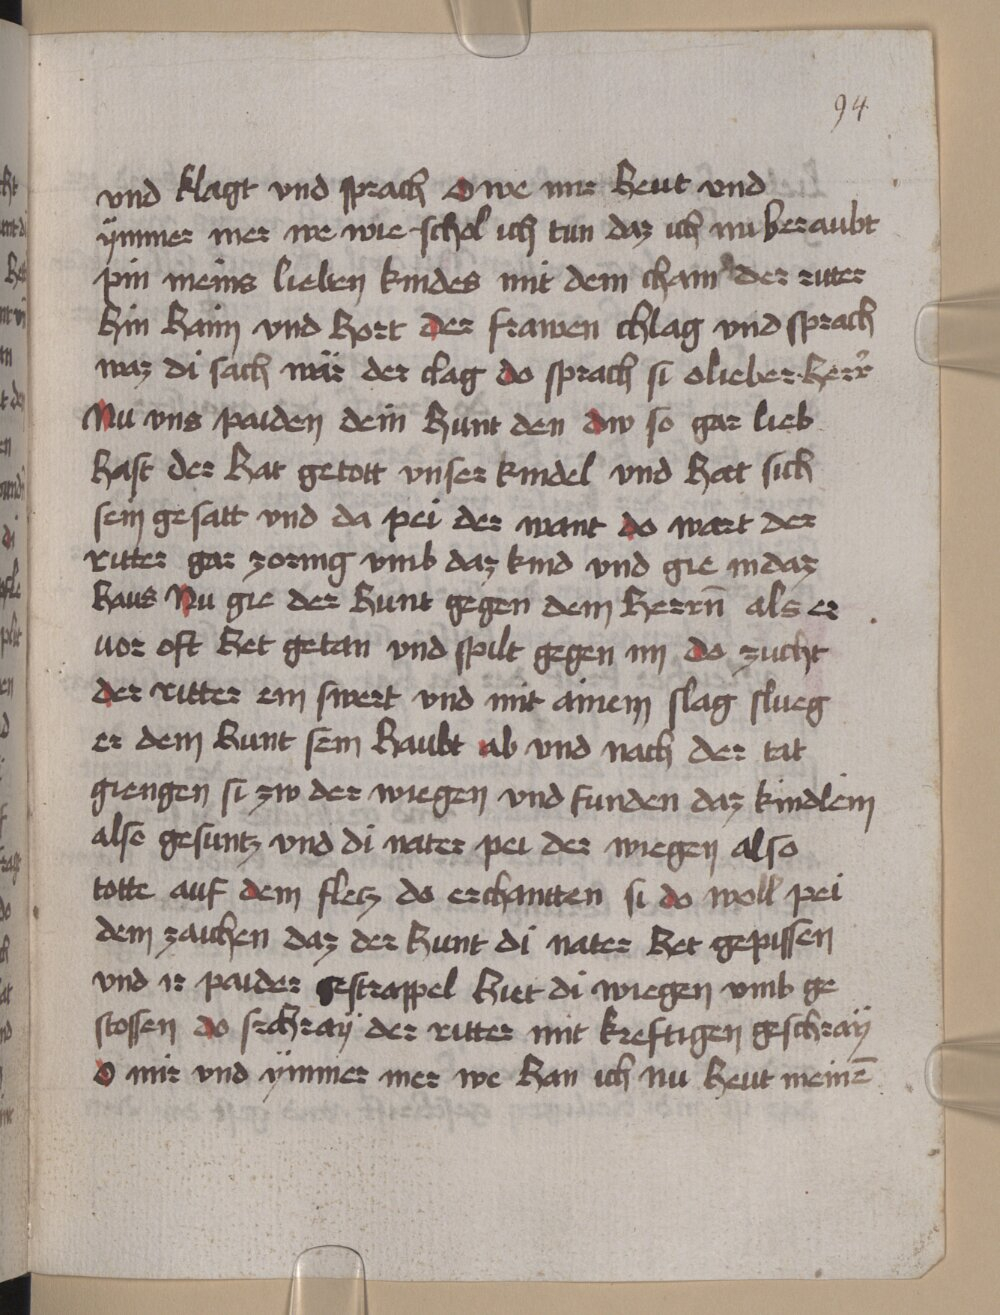 94
vnd klagt vnd sprach O we mir heut vnd
ÿmmer mer we wie schol ich tun daz ich nu beraubt
pin meins lieben kindes mit dem cham der ritter
hin haim vnd hort der frawen chlag vnd sprach
waz di sach wär der clag do sprach si o lieber herr
Nu vns paiden dein hunt den dw so gar lieb
hast der hat getott vnser kindel vnd hat sich
sein gesatt vnd da pei der want do wart der
ritter gar zornig vmb daz kind vnd gie in daz
haus Nu gie der hunt gegen dem herrn̄ als er
vor oft het getan vnd spilt gegen im do zucht
der ritter ein swert vnd mit ainem slag slueg
er dem hunt sein haubt ab vnd nach der tat
giengen si zw der wiegen vnd funden daz kindlein
also gesuntz vnd di nater pei der wiegen also
totte auf dem fletz do erchantten si do woll pei
dem zaichen daz der hunt di nater het gepissen
vnd ir paider gestrappel hiet di wiegen vmb ge
stossen do schray der ritter mit kreftigen geschräÿ
O mir vnd ÿmmer mer we han ich nu heut meinē